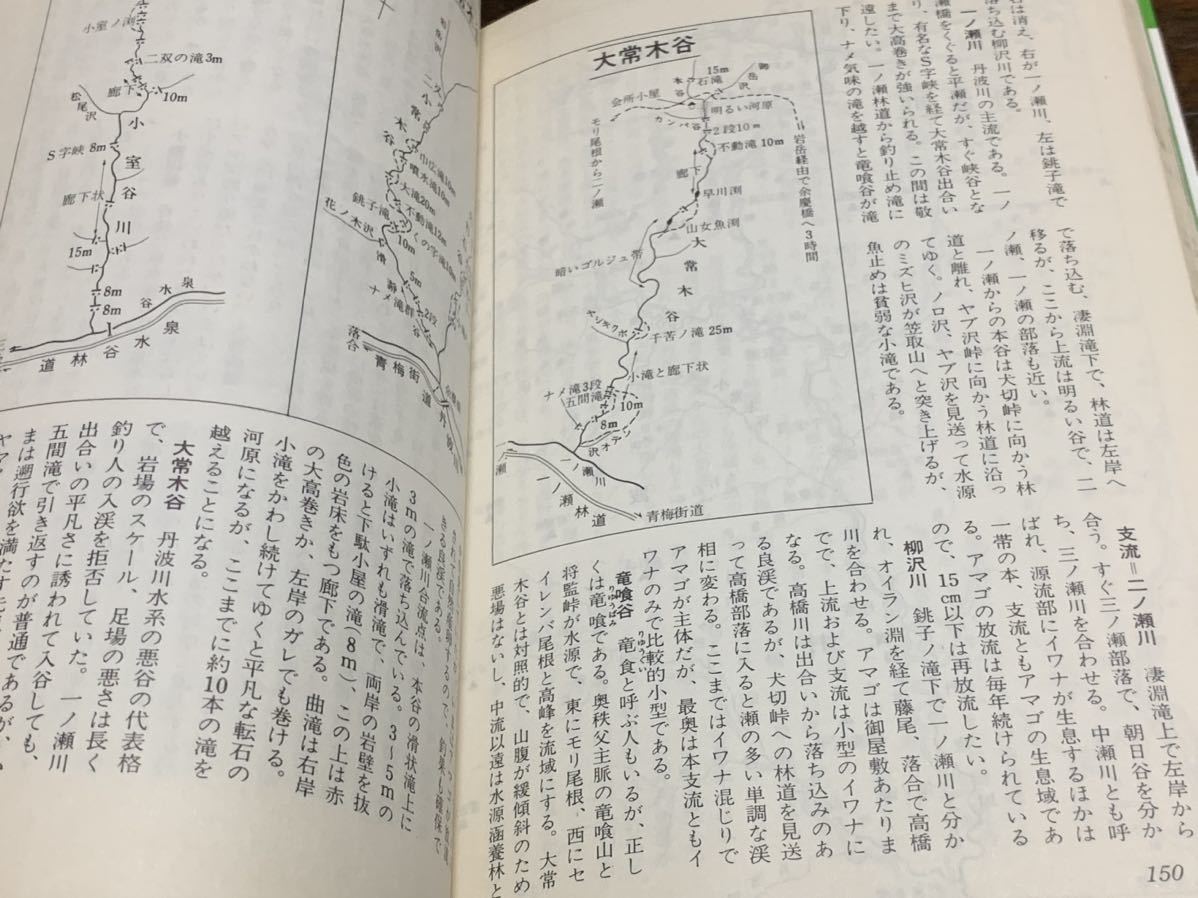 名は消え、右が一ノ瀬川、左は銚子滝で
落ち込む柳沢川である。
一ノ瀬川　丹波川の主流である。一ノ
瀬橋をくぐると平瀬だが、すぐ峡谷とな
り、有名なS字峡を経て大常木谷出合い
まで大高巻きが強いられる。この間は敬
遠したい。一ノ瀬林道から釣り止め滝に
下り、ナメ気味の滝を越すと竜喰谷が滝
で落ち込む、凄淵滝下で、林道は左岸へ
移るが、ここから上流は明るい谷で、二
ノ瀬、一ノ瀬の部落も近い。
一ノ瀬からの本谷は犬切峠に向かう林
道と離れ、ヤブ沢峠に向かう林道に沿っ
てゆく。ノロ沢、ヤブ沢を見送って水源
のミズヒ沢が笠取山へと突き上げるが、
魚止めは貧弱な小滝である。
支流＝二ノ瀬川　凄淵滝上で左岸から
合う。すぐ三ノ瀬部落で、朝日谷を分か
ち、三ノ瀬川を合わせる。中瀬川とも呼
ばれ、源流部にイワナが生息するほかは
一帯の本、支流ともアマゴの生息域であ
る。アマゴの放流は毎年続けられている
ので、15cm以下は再放流したい。
柳沢川　銚子ノ滝下で一ノ瀬川と分か
れ、オイラン淵を経て藤尾、落合で高橋
川を合わせる。アマゴは御屋敷あたりま
でで、上流および支流は小型のイワナに
なる。高橋川は出合いから落ち込みのあ
る良渓であるが、犬切峠への林道を見送
って高橋部落に入ると瀬の多い単調な渓
相に変わる。ここまではイワナ混じりで
アマゴが主体だが、最奥は本支流ともイ
ワナのみで比較的小型である。
竜喰谷　竜食と呼ぶ人もいるが、正し
りゅうばみ
りゅうぐい
くは竜喰である。奥秩父主脈の竜喰山と
将監峠が水源で、東にモリ尾根、西にセ
イレンバ尾根と高峰を流域にする。大常
木谷とは対照的で、山腹が緩傾斜のため
悪場はないし、中流以遠は水源涵養林と
150
大常木谷
15m
石滝
御岳沢
本谷
会所小屋
カンバ谷
明るい河原
モリ尾根から二ノ瀬
2段10m
不動滝10m
岩岳経由で余慶橋へ3時間
廊下
早川渕
山女魚渕
暗いゴルジュ帯
大常木谷
千苦ノ滝 25m
小滝と廊下状
ナメ滝3段
五間滝
10m
8m
一ノ瀬川
一ノ瀬林道
青梅街道
小屋ノ渕
二双の滝3m
廊下
10m
松尾沢
S字峡 8m
小室谷川
廊下状
15m
8m
8m
泉水谷
泉水谷林道
小常木谷
噴水滝10m
大滝20m
不動滝12m
くの字滝10m
銚子滝
10m
花ノ木沢
滑谷
5m
ナメ滝
2段
落合
青梅街道
丹波
きる良渓である。
一ノ瀬川合流点は、本谷の滑状滝上に
3mの滝で落ち込んでいる。3〜5mの
小滝はいずれも滑滝で、両岸の岩壁を抜
けると下駄小屋の滝（8m）、この上は赤
色の岩床をもつ廊下である。曲滝は右岸
の大高巻きか、左岸のガレでも巻ける。
小滝をかわし続けてゆくと平凡な転石の
河原になるが、ここまでに約10本の滝を
越えることになる。
大常木谷　丹波川水系の悪谷の代表格
で、岩場のスケール、足場の悪さは長く
釣り人の入渓を拒否していた。一ノ瀬川
出合いの平凡さに誘われて入谷しても、
五間滝で引き返すのが普通であるが、
まは遡行欲を満たす